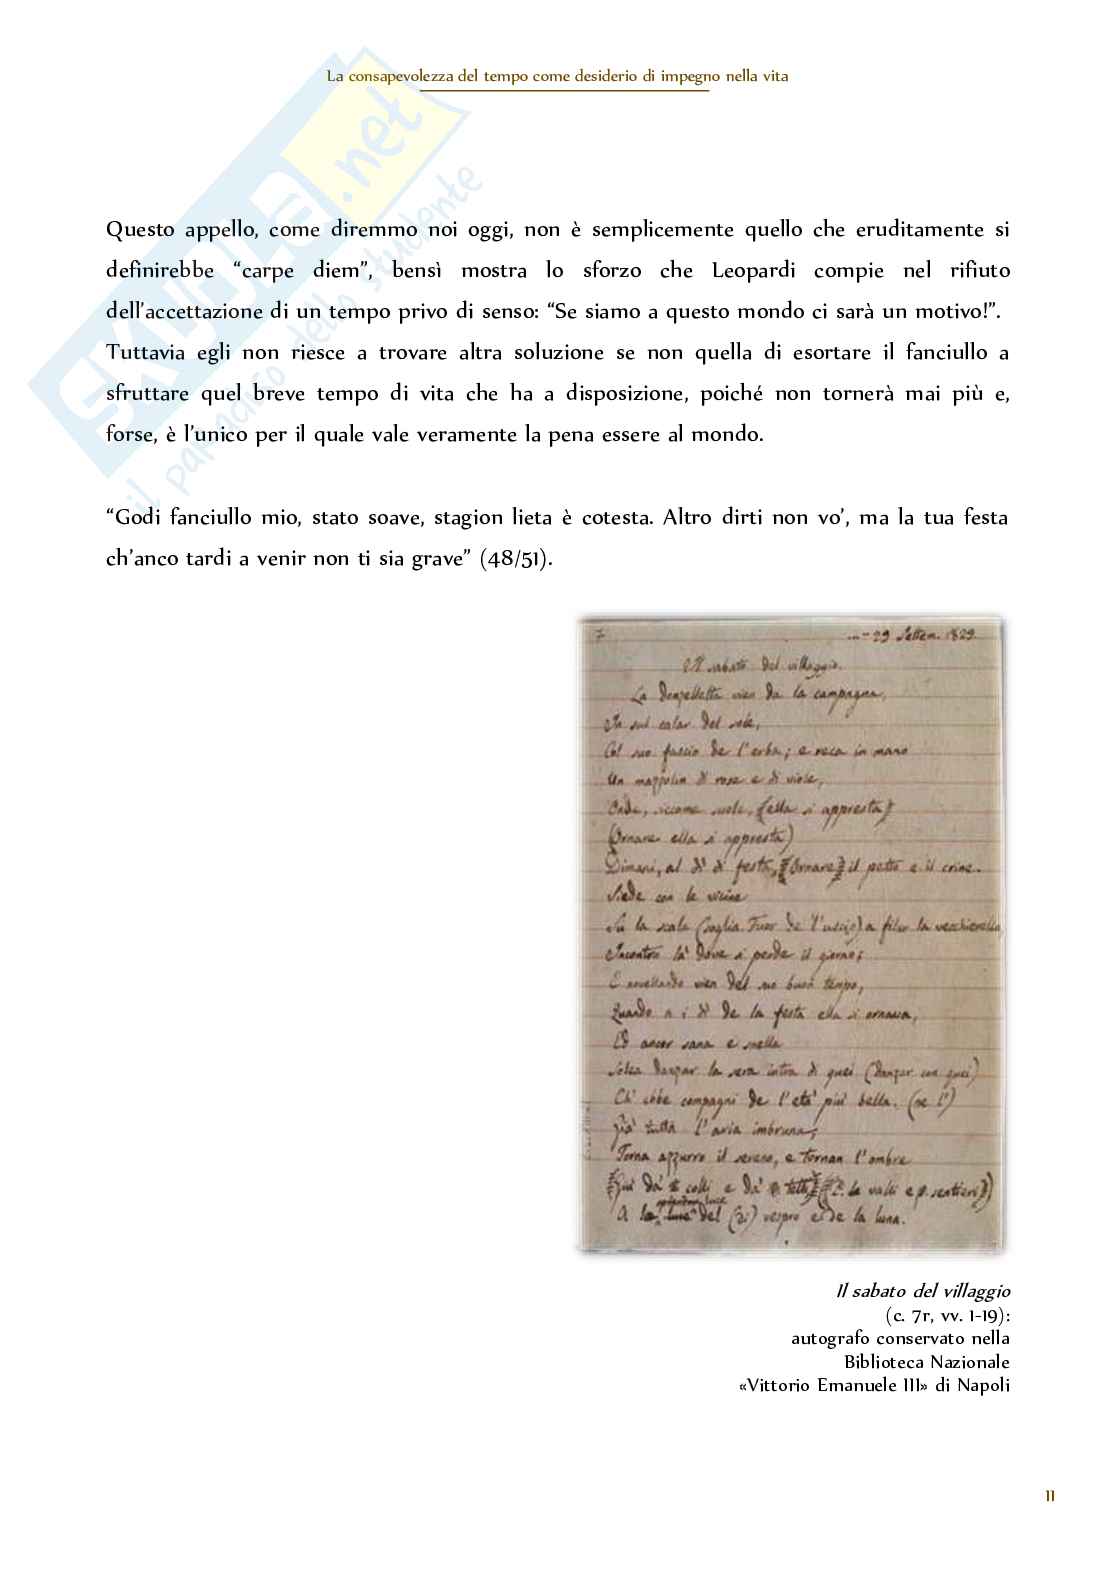 La consapevolezza del tempo come desiderio di impegno nella vita
SKUOLA.net
il paradiso dello studente
Questo appello, come diremmo noi oggi, non è semplicemente quello che eruditamente si
definirebbe “carpe diem”, bensì mostra lo sforzo che Leopardi compie nel rifiuto
dell’accettazione di un tempo privo di senso: “Se siamo a questo mondo ci sarà un motivo!”.
Tuttavia egli non riesce a trovare altra soluzione se non quella di esortare il fanciullo a
sfruttare quel breve tempo di vita che ha a disposizione, poiché non tornerà mai più e,
forse, è l’unico per il quale vale veramente la pena essere al mondo.
“Godi fanciullo mio, stato soave, stagion lieta è cotesta. Altro dirti non vo’, ma la tua festa
ch’anco tardi a venir non ti sia grave” (48/51).
7 29 Settem. 1829.
Il sabato del villaggio.
La donzelletta vien da la campagna,
In sul calar del sole,
Col suo fascio de l'erba; e reca in mano
Un mazzolin di rose e di viole,
Onde, siccome suole, (ella si appresta)
(Ornare ella si appresta)
Dimani, al dì di festa, (Ornare) il petto e il crine.
Siede con le vicine
Su la scala (soglia. Fuor de l'uscio) a filar la vecchierella
Incontro là dove si perde il giorno;
E novellando vien del suo buon tempo,
Quando a i dì de la festa ella si ornava,
Ed ancor sana e snella
Solea danzar la sera intra di quei (danzar con quei)
Ch' ebbe compagni de l'età più bella. (ne l')
Già tutta l'aria imbruna;
Torna azzurro il sereno, e tornan l'ombre
Giù da' colli e da' tetti (E le valli e sentieri)
A la luce del vespro e de la luna.
Il sabato del villaggio
(c. 7r, vv. 1-19):
autografo conservato nella
Biblioteca Nazionale
«Vittorio Emanuele III» di Napoli
11